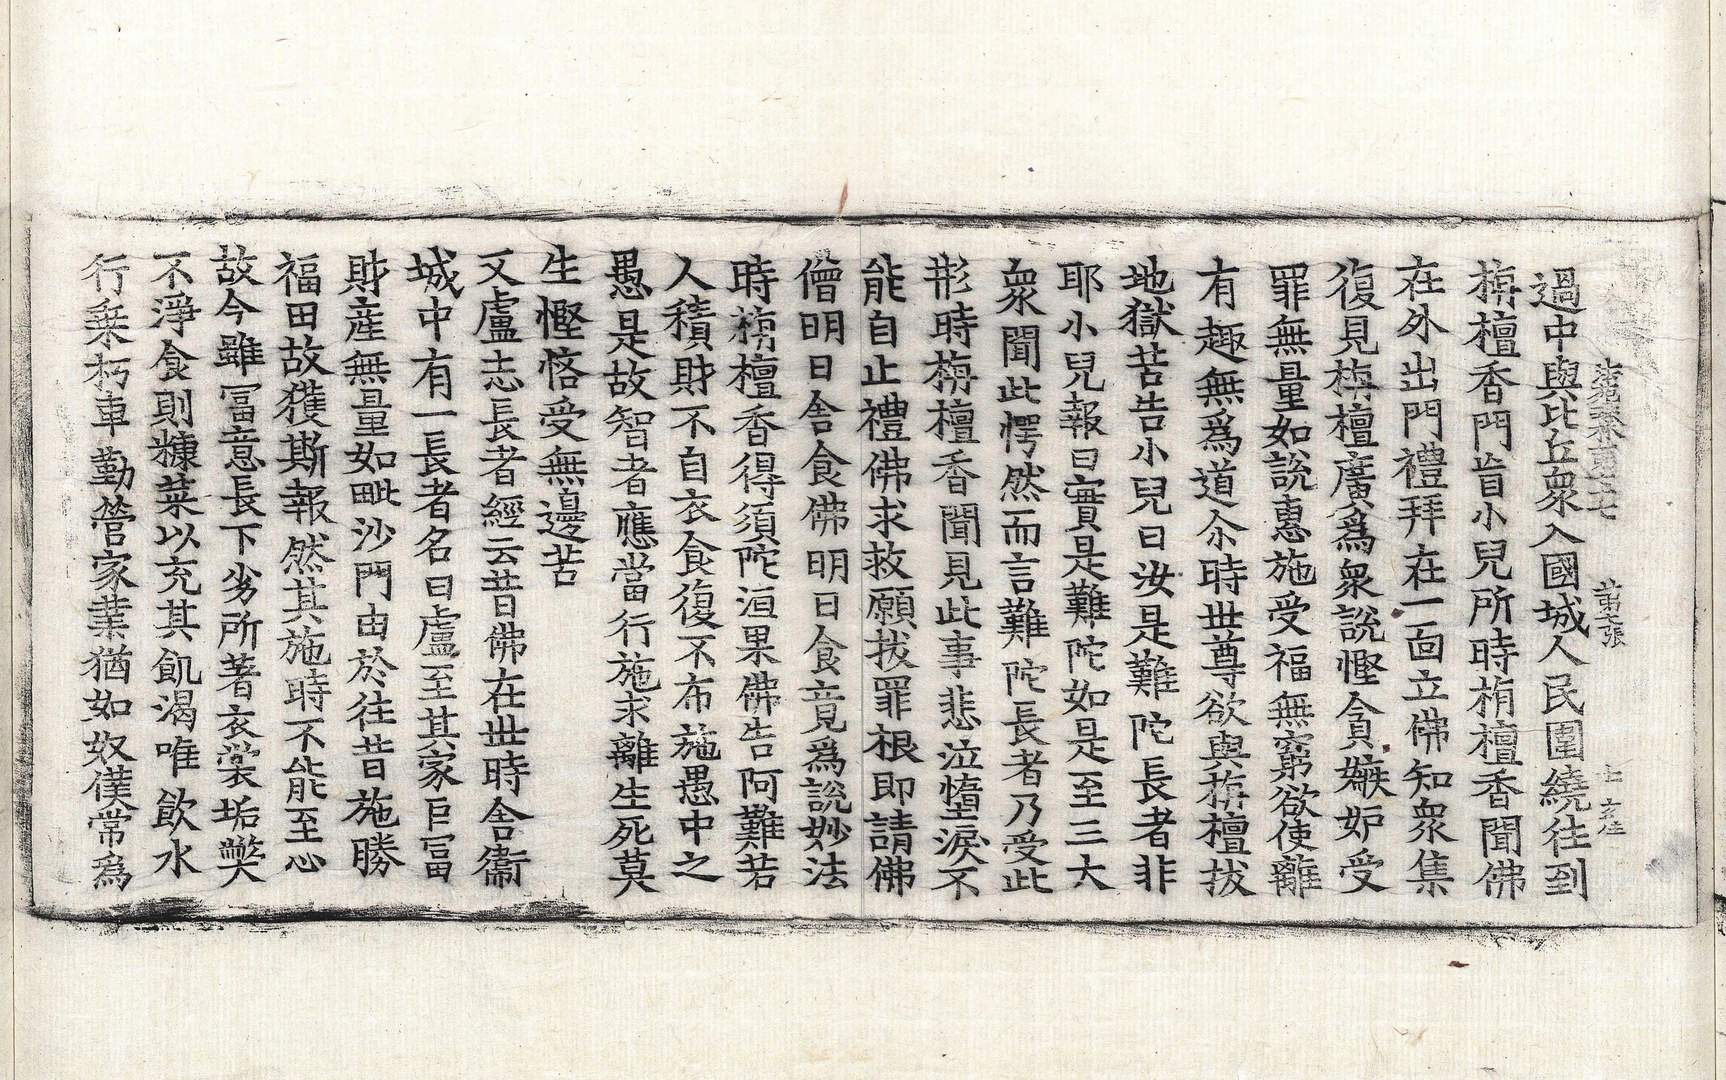 法苑珠第七七 第七張 七 玄佳
過中與比丘衆入國城人民圍繞往到
栴檀香門盲小兒所時栴檀香聞佛
在外出門禮拜在一面立佛知衆集
復見栴檀廣爲衆說慳貪嫉妒受
罪無量如說惠施受福無窮欲使離
有趣無爲道尒時世尊欲與栴檀拔
地獄苦告小兒曰汝是難陀長者非
耶小兒報曰實是難陀如是至三大
衆聞此愕然而言難陀長者乃受此
形時栴檀香聞見此事悲泣墮淚不
能自止禮佛求救願拔罪根即請佛
僧明日舍食佛明日食竟爲說妙法
時栴檀香得須陀洹果佛告阿難若
人積財不自衣食復不布施愚中之
愚是故智者應當行施求離生死莫
生慳悋受無邊苦
又盧志長者經云昔佛在世時舍衞
城中有一長者名曰盧至其家巨冨
財產無量如毗沙門由於往昔施勝
福田故獲斯報然其施時不能至心
故今雖冨意長下劣所著衣裳垢弊
不淨食則糠菜以充其飢渴唯飲水
行乗朽車勤營家業猶如奴僕常爲